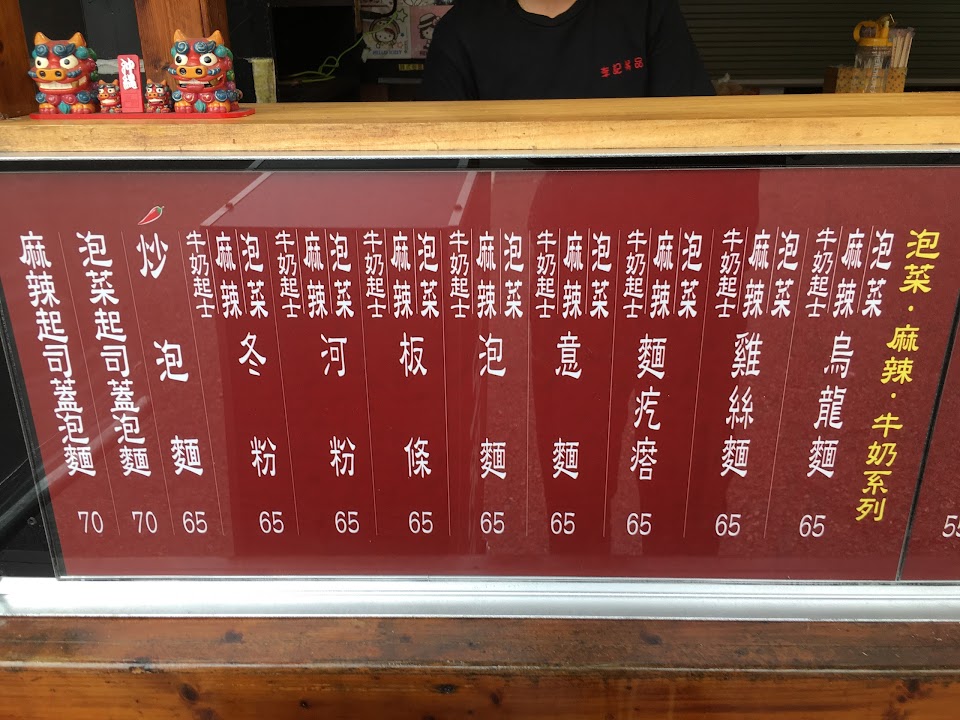 李記美食
泡菜．麻辣．牛奶系列
泡菜
麻辣
牛奶起士
烏龍麵
65
泡菜
麻辣
牛奶起士
雞絲麵
65
泡菜
麻辣
牛奶起士
麵疙瘩
65
泡菜
麻辣
牛奶起士
意麵
65
泡菜
麻辣
牛奶起士
泡麵
65
泡菜
麻辣
牛奶起士
板條
65
泡菜
麻辣
牛奶起士
河粉
65
泡菜
麻辣
牛奶起士
冬粉
65
炒泡麵
65
泡菜起司蓋泡麵
70
麻辣起司蓋泡麵
70
55